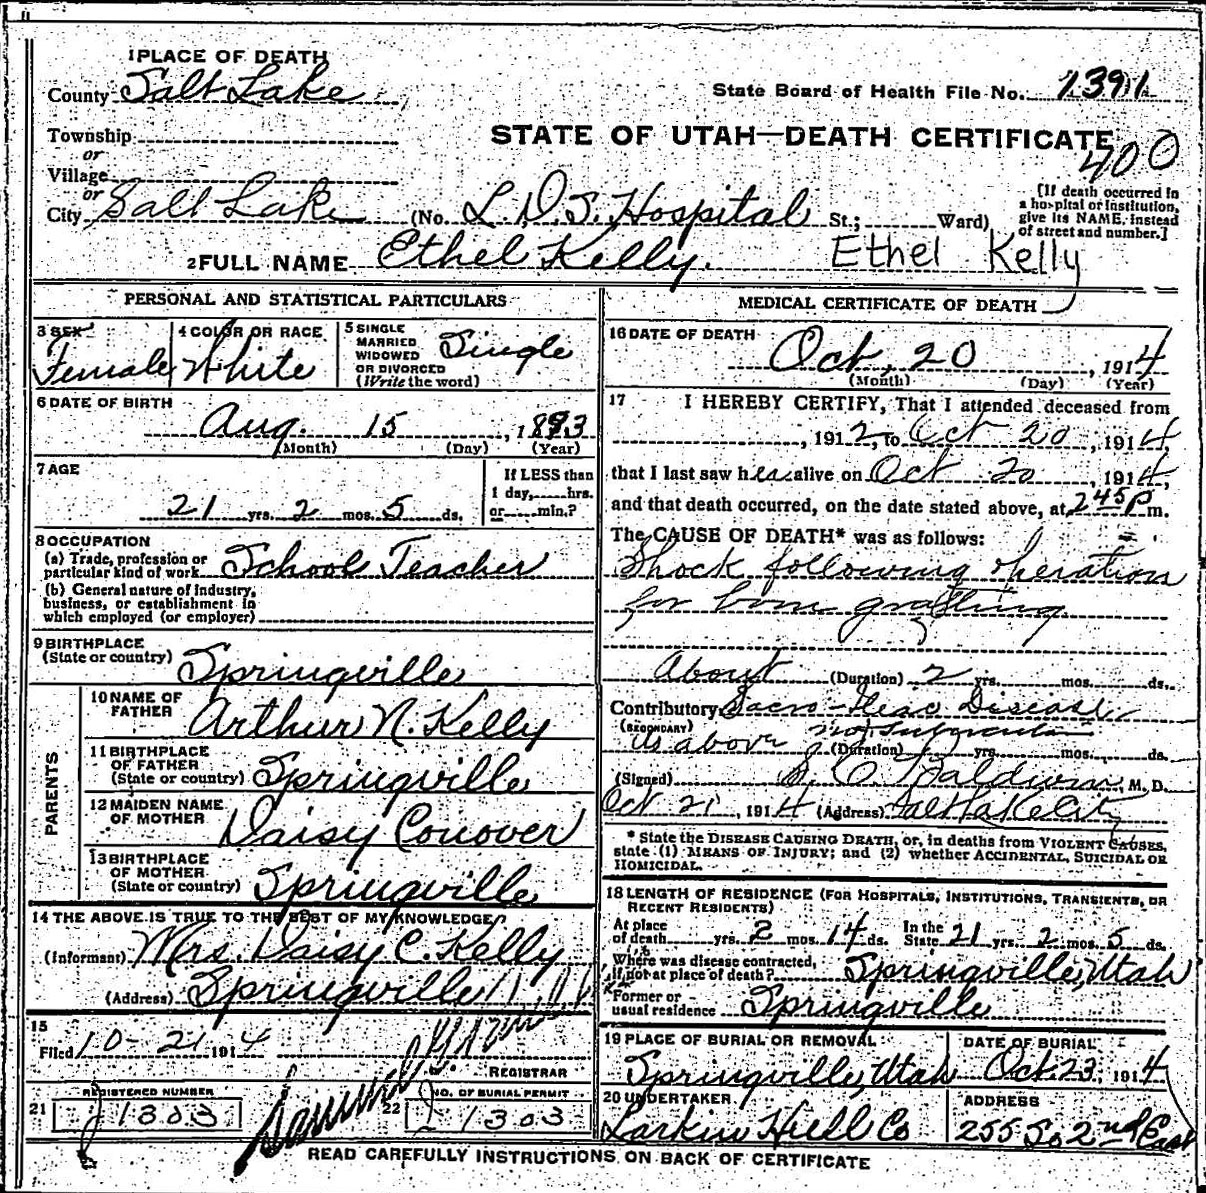 1 PLACE OF DEATH
County Salt Lake
State Board of Health File No. 1391
Township
STATE OF UTAH—DEATH CERTIFICATE
400
or
Village
or
City Salt Lake (No. L.D.S. Hospital St.; Ward)
[If death occurred in
a hospital or institution,
give its NAME instead
of street and number.]
2 FULL NAME Ethel Kelly. Ethel Kelly
PERSONAL AND STATISTICAL PARTICULARS
3 SEX
Female
4 COLOR OR RACE
White
5 SINGLE
MARRIED
WIDOWED
OR DIVORCED
(Write the word)
Single
6 DATE OF BIRTH
Aug. 15, 1893
(Month) (Day) (Year)
7 AGE
21 yrs. 2 mos. 5 ds.
If LESS than
1 day, hrs.
or min.?
8 OCCUPATION
(a) Trade, profession or
particular kind of work School Teacher
(b) General nature of Industry,
business, or establishment in
which employed (or employer)
9 BIRTHPLACE
(State or country) Springville
PARENTS
10 NAME OF
FATHER Arthur N. Kelly
11 BIRTHPLACE
OF FATHER
(State or country) Springville
12 MAIDEN NAME
OF MOTHER Daisy Conover
13 BIRTHPLACE
OF MOTHER
(State or country) Springville
14 THE ABOVE IS TRUE TO THE BEST OF MY KNOWLEDGE
(Informant) Mrs. Daisy C. Kelly
(Address) Springville
15
Filed 10-21 1914
REGISTRAR
REGISTERED NUMBER
21 1303
NO. OF BURIAL PERMIT
22 1303
MEDICAL CERTIFICATE OF DEATH
16 DATE OF DEATH
Oct. 20, 1914
(Month) (Day) (Year)
17 I HEREBY CERTIFY, That I attended deceased from
, 1912, to Oct 20, 1914,
that I last saw her alive on Oct 20, 1914,
and that death occurred, on the date stated above, at 2 45 P m.
The CAUSE OF DEATH* was as follows:
Shock following operation
for bone grafting
About (Duration) 2 yrs. mos. ds.
Contributory Sacro-Iliac Disease
(SECONDARY) not Tubercular
as above (Duration) yrs. mos. ds.
(Signed) S. C. Baldwin, M. D.
Oct 21, 1914 (Address) Salt Lake City
* State the DISEASE CAUSING DEATH, or, in deaths from VIOLENT CAUSES,
state (1) MEANS OF INJURY; and (2) whether ACCIDENTAL, SUICIDAL OR
HOMICIDAL.
18 LENGTH OF RESIDENCE (FOR HOSPITALS, INSTITUTIONS, TRANSIENTS, OR
RECENT RESIDENTS)
At place
of death yrs. 2 mos. 14 ds. In the
State 21 yrs. 2 mos. 5 ds.
Where was disease contracted,
if not at place of death? Springville, Utah
Former or
usual residence Springville
19 PLACE OF BURIAL OR REMOVAL
Springville, Utah
DATE OF BURIAL
Oct. 23, 1914
20 UNDERTAKER
Larkin Hull Co
ADDRESS
255 So 2nd East
READ CAREFULLY INSTRUCTIONS ON BACK OF CERTIFICATE